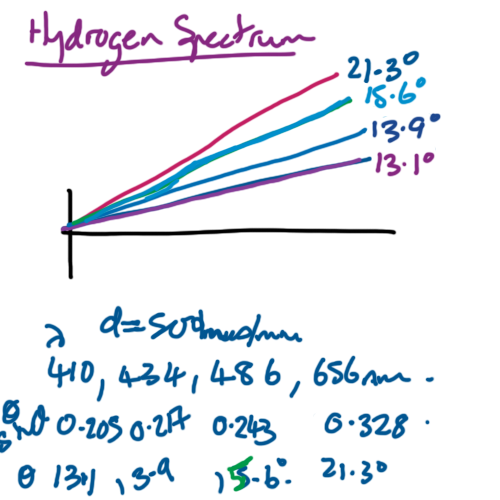 Hydrogen Spectrum
21.3°
15.6°
13.9°
13.1°
λ d=500lines/mm
410, 434, 486, 656nm.
0.205 0.217 0.243 0.328
θ 13.1, 13.9, 15.6°. 21.3°